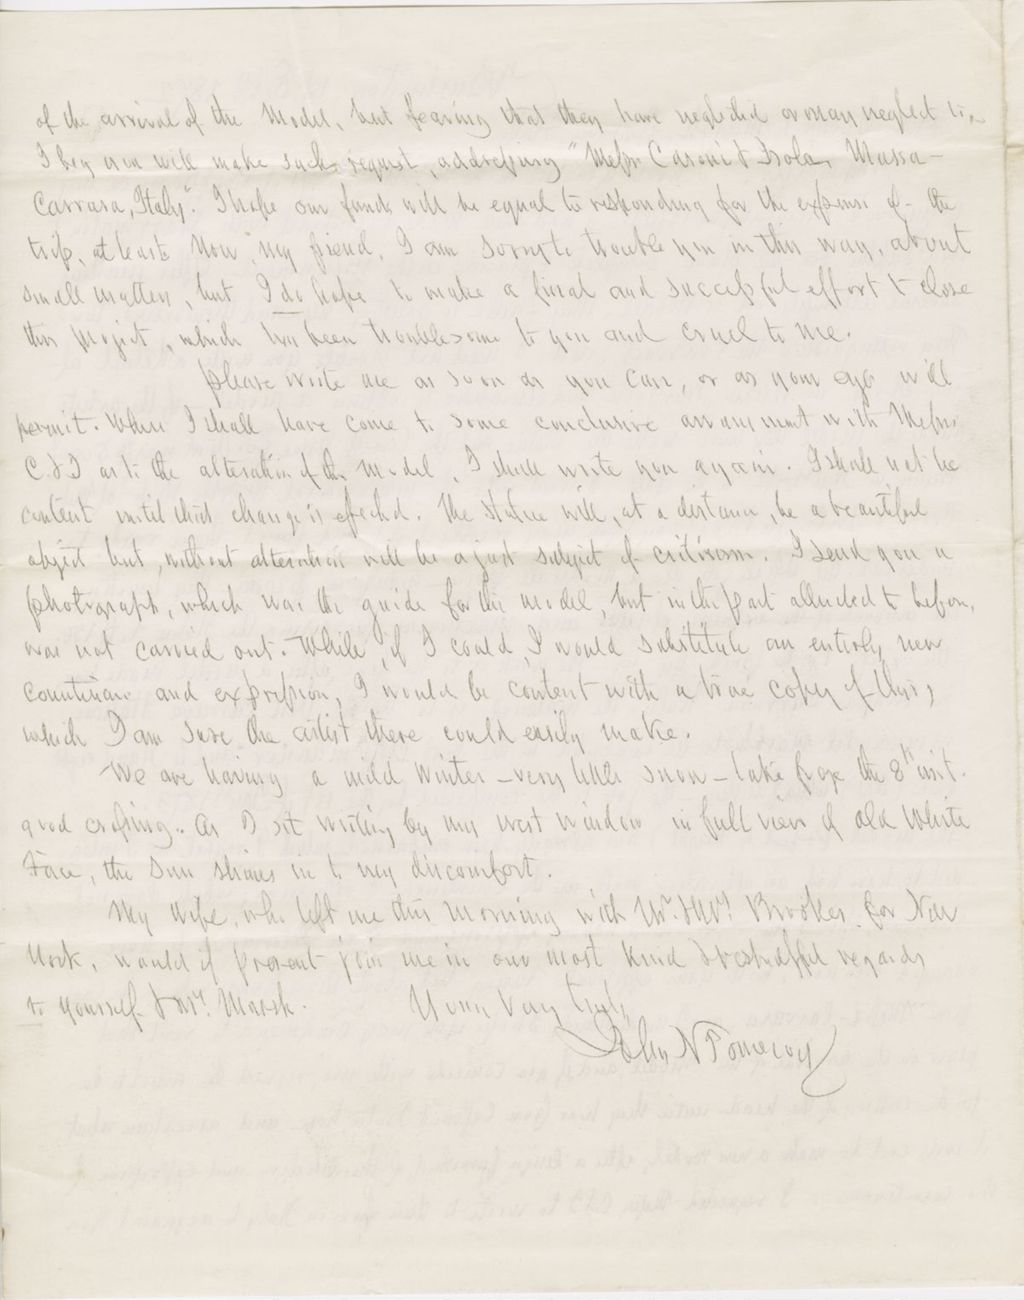 of the arrival of the Model, but fearing that they have neglected or may neglect to,
I beg you will make such request, addressing "Messrs Caroni & Isola, Massa-
Carrara, Italy". I hope our funds will be equal to responding for the expense of the
trip, at least. Now my friend, I am sorry to trouble you in this way, about
small matters, but I do hope to make a final and successful effort to close
this project, which has been troublesome to you and cruel to me.
Please write me as soon as you can, or as your eyes will
permit. When I shall have come to some conclusive arrangement with Messrs
C. & I as to the alteration of the model, I shall write you again. I shall not be
content until this change is effected. The Statue will, at a distance, be a beautiful
object but, without alteration will be a just subject of criticism. I send you a
photograph, which was the guide for the model, but in the part alluded to before,
was not carried out. While, if I could, I would substitute an entirely new
countenance and expression, I would be content with a true copy of this,
which I am sure the artist there could easily make.
We are having a mild winter - very little snow - lake froze the 8th inst.
good crossing. As I sit writing by my west window in full view of old White
Face, the sun shines in to my discomfort.
My wife, who left me this morning with Mr. & Mrs. Brookes for New
York, would if present join me in our most kind & respectful regards
to yourself & Mrs. Marsh. Yours Very truly,
John N Pomeroy